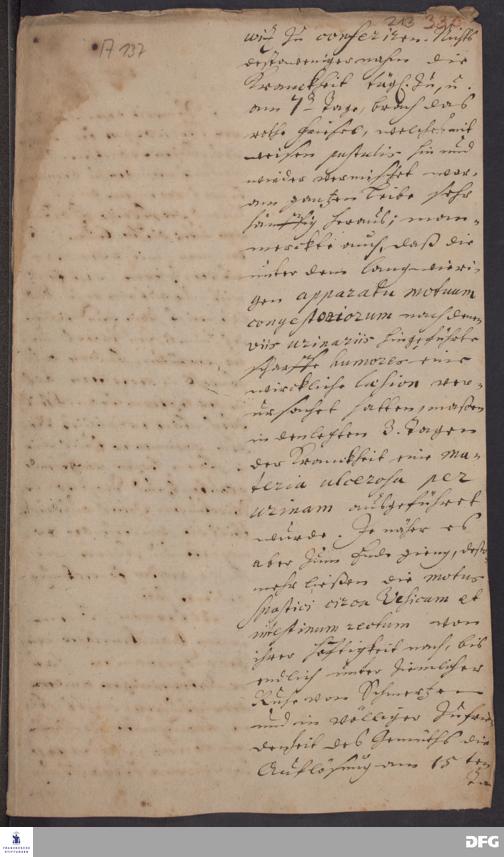 213 336
A 137
wie zu conferiren. Nichts
destoweniger nahm die
Kranckheit tägl. zu, u.
am 7 Tage, brach das
rothe friesel, welches mit
weisen pustulis hin und
wieder vermischet war,
am gantzen Leibe sehr
häuffig heraus; man
merckte auch, daß die
unter dem langwieri-
gen apparatu motuum
congestoriorum nach denen
viis urinariis hingeführte
scharffe humores eine
wirckliche læsion ver-
ursachet hatten, maßen
in den letzten 3. Tagen
der Kranckheit eine ma-
teria ulcerosa per
urinam ausgeführet
wurde. Je näher es
aber zum Ende gieng, desto
mehr ließen die motus
spastici circa Vesicam et
intestinum rectum von
ihrer Hefftigkeit nach, bis
endlich unter ziemlicher
Ruhe von Schmertzen
und in völliger Zufrie
denheit des Gemüths die
Auflösung am 15 ten
Ta
FRANCKESCHE
STIFTUNGEN
DFG